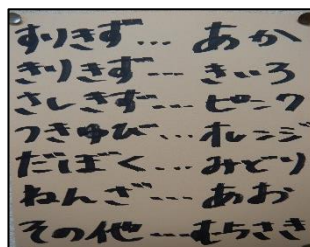 すりきず… あか
きりきず… きいろ
さしきず… ピンク
つきゆび… オレンジ
だぼく… みどり
ねんざ… あお
その他… むらさき